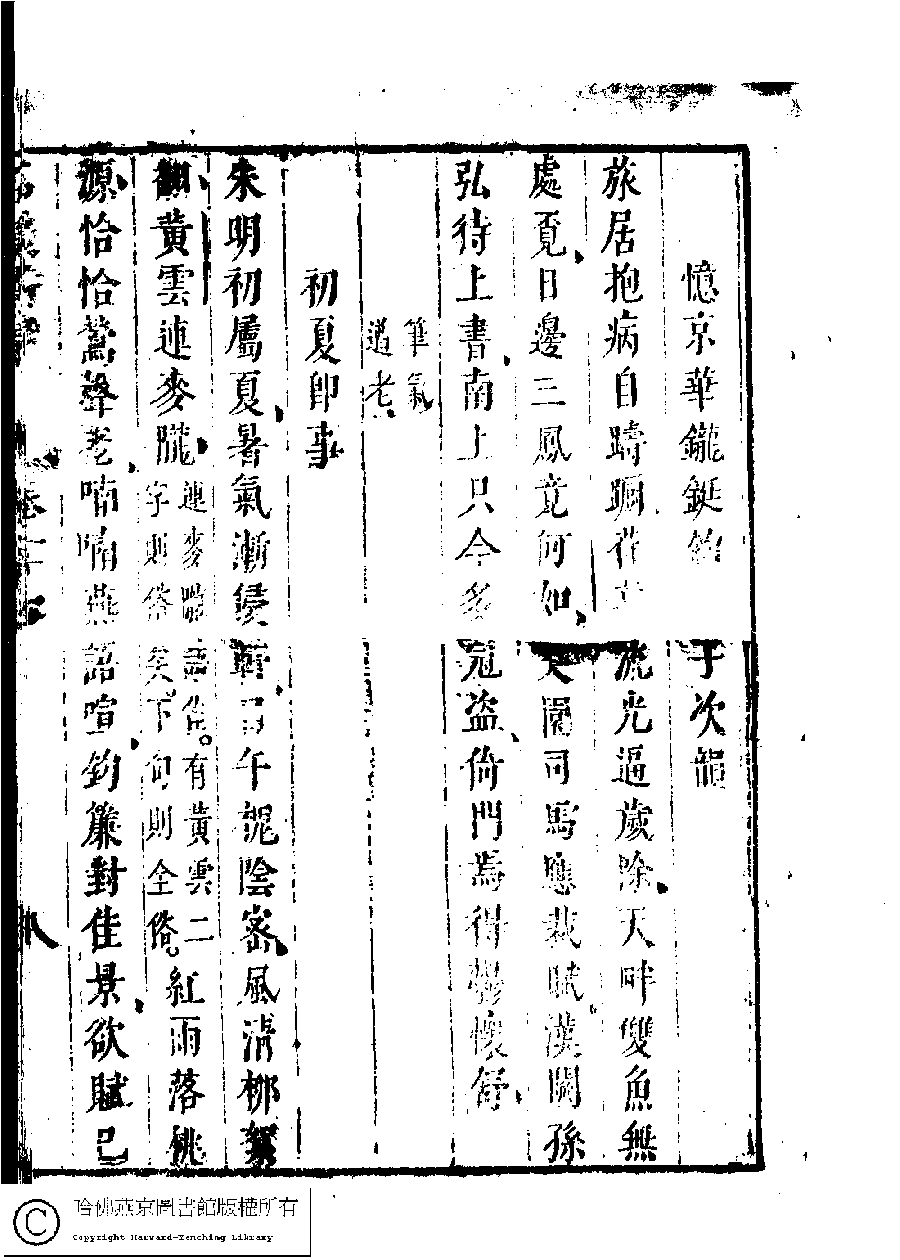 憶京華鑨鋌鈞 子次韻
旅居抱病自躊躕 流光逼歲除天畔雙魚無
處覓日邊三鳳竟何如 園司馬應裁賦漢闕孫
弘待上書南上只今多寇盜倚門焉得鬱懷舒
筆氣
遒老
初夏即事
朱明初屬夏暑氣漸侵 日午槐陰密風清柳絮
翻黃雲連麥隴
連麥隴 俗有黃雲二
字則俗矣下句則全俗
紅雨落桃
源恰恰鶯聲老喃喃燕語喧鈎簾對佳景欲賦已
卷十
八
哈佛燕京圖書館版權所有
Copyright Harvard-Yenching Library